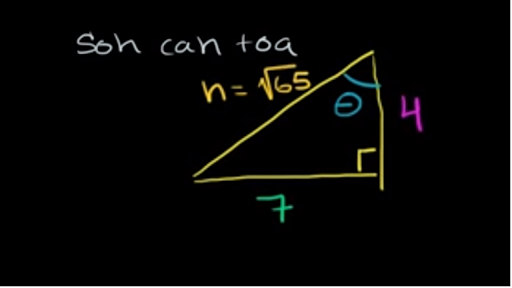 Soh cah toa
h = √65
θ
4
7